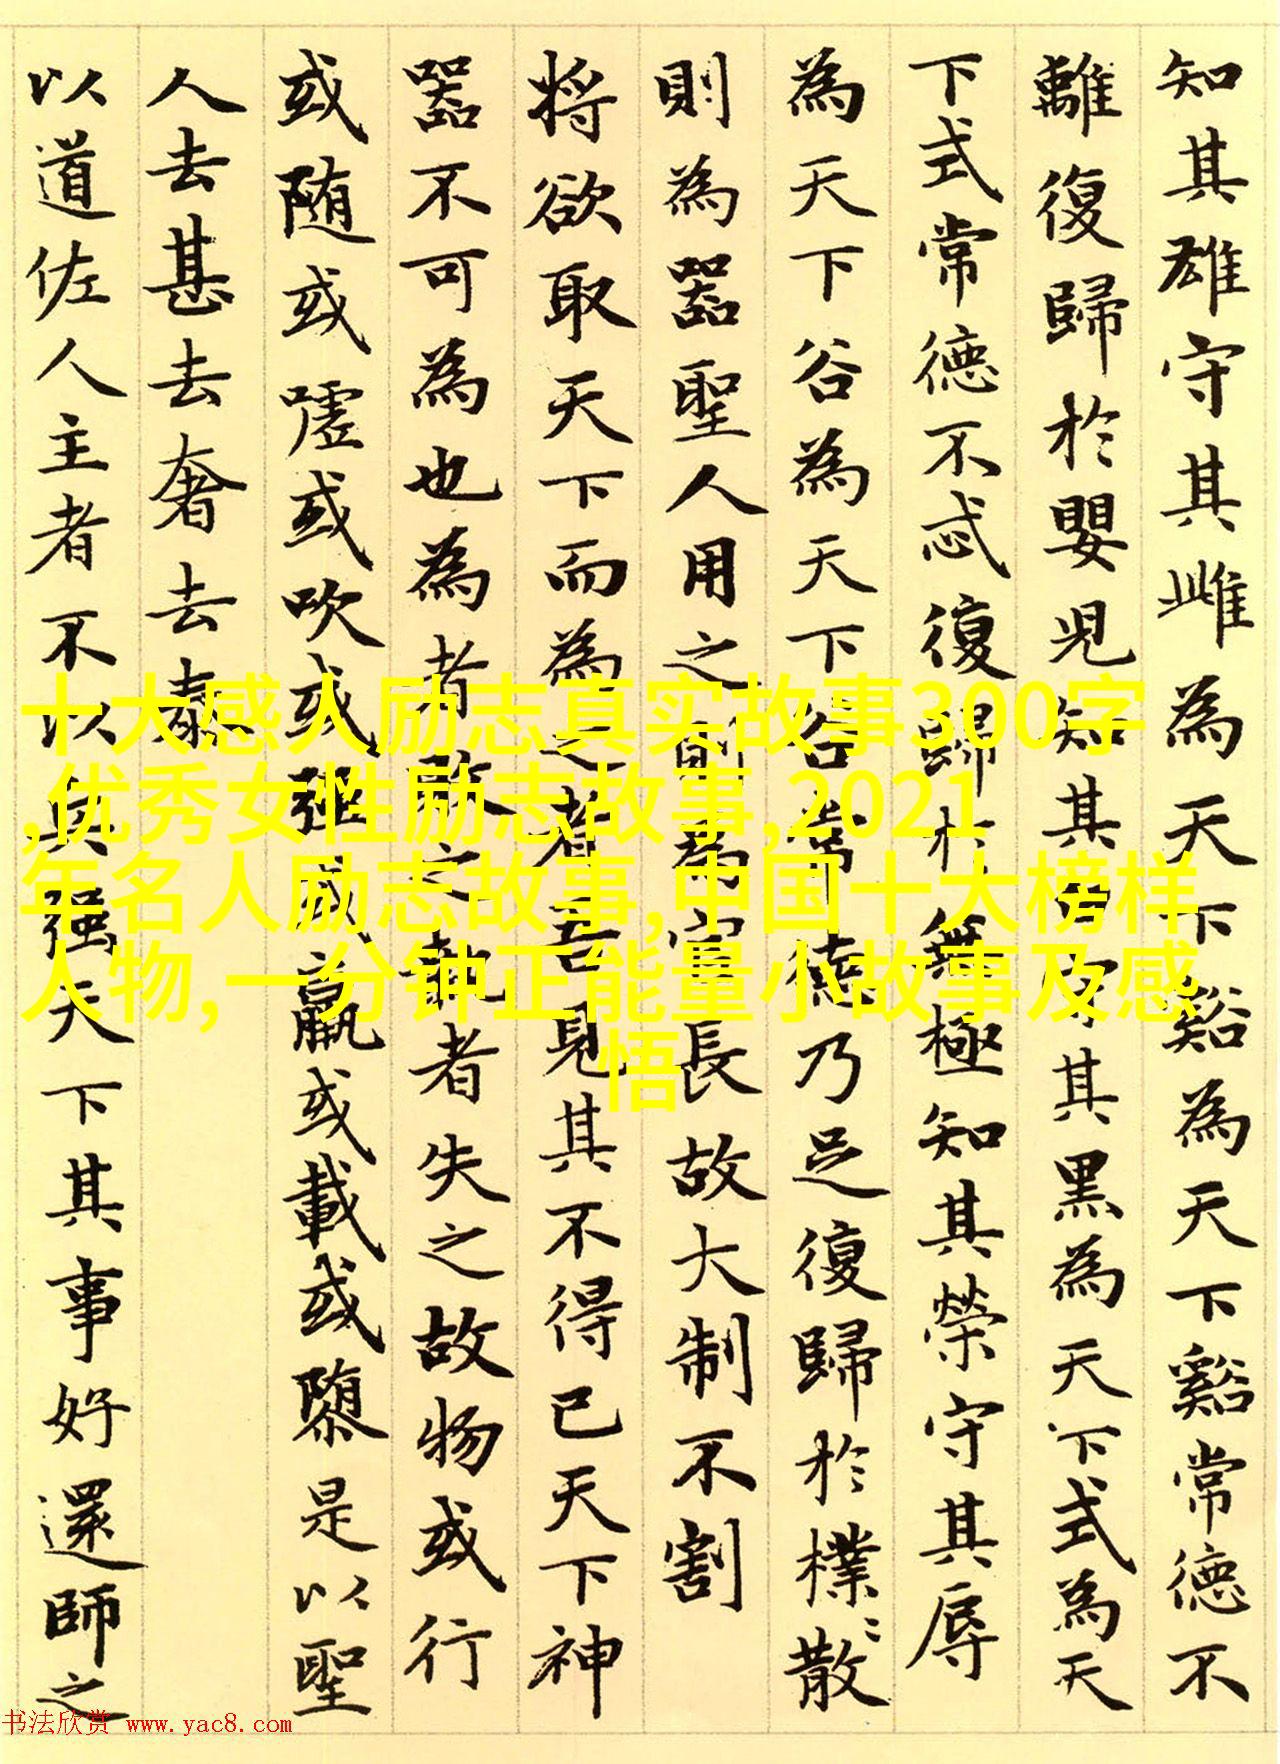 知其雄守其雌為天下谿為天下谿常德不
離復歸於嬰兒知其白守其黑為天下式為天
下式常德不忒復歸於無極知其榮守其辱
為天下谷為天下谷常德乃足復歸於樸〻散
則為器聖人用之則為官長故大制不割
将欲取天下而為之者吾見其不得已天下神
器不可為也為者敗之執者失之故物或行
或随或嘘或吹或强或羸或載或隳是以聖
人去甚去奢去泰
以道佐人主者不以兵强天下其事好還師之
十大感人励志真实故事300字
,优秀女性励志故事,2021
年名人励志故事,中国十大榜样
人物,一分钟正能量小故事及感
悟
书法欣赏 www.yac8.com